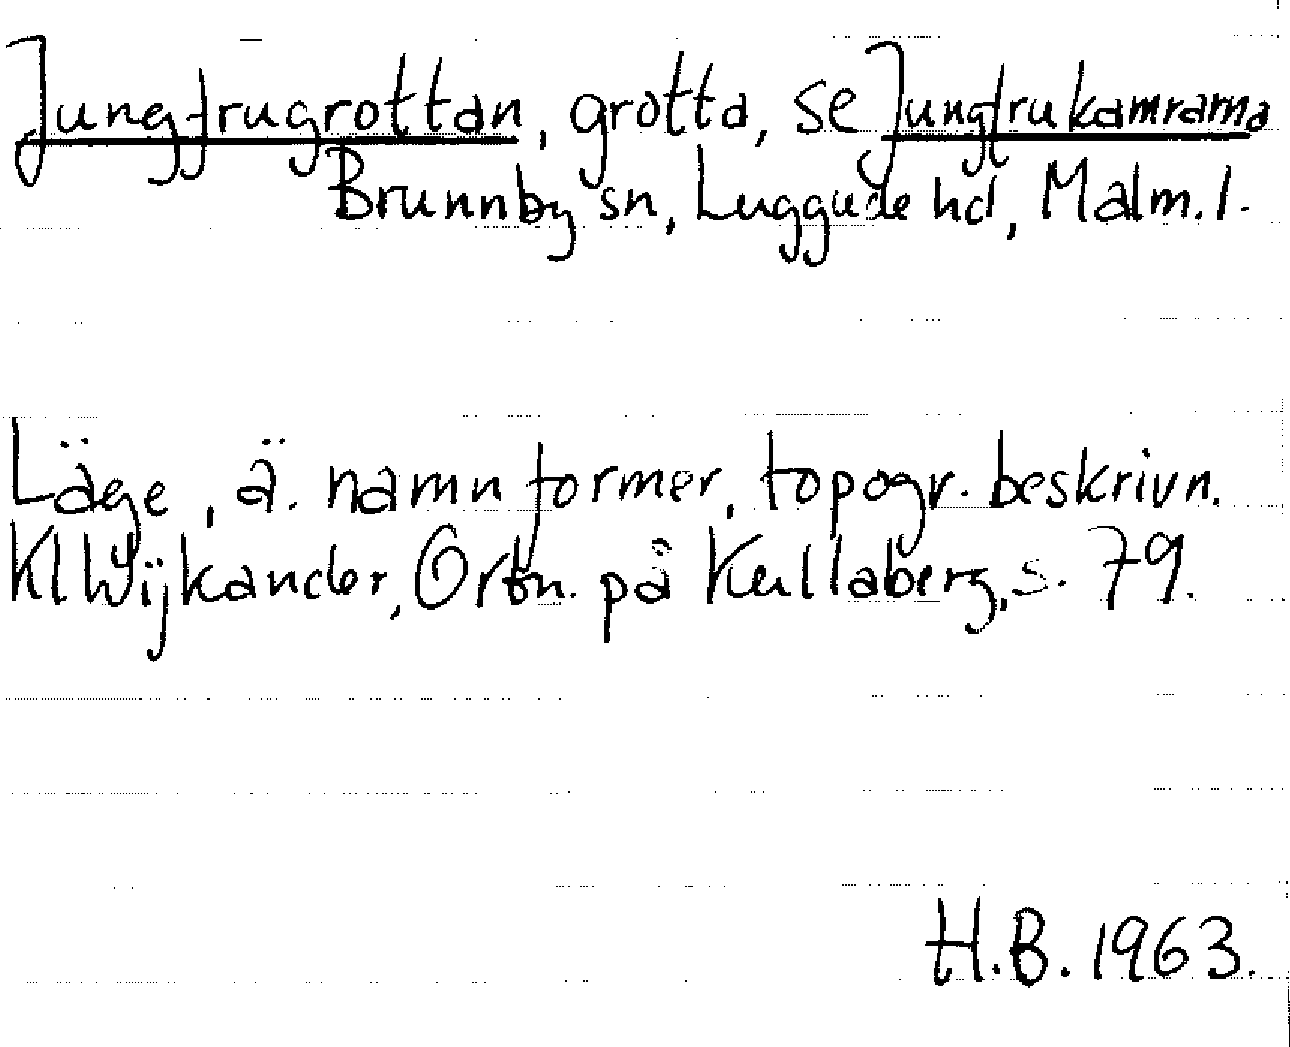 Jungfrugrottan, grotta, se Jungfrukamrarna
Brunnby sn, Luggude hd, Malm. l.
Läge, ä. namnformer, topogr. beskrivn.
Kl Wijkander, Ortn. på Kullaberg, s. 79.
H.B. 1963.